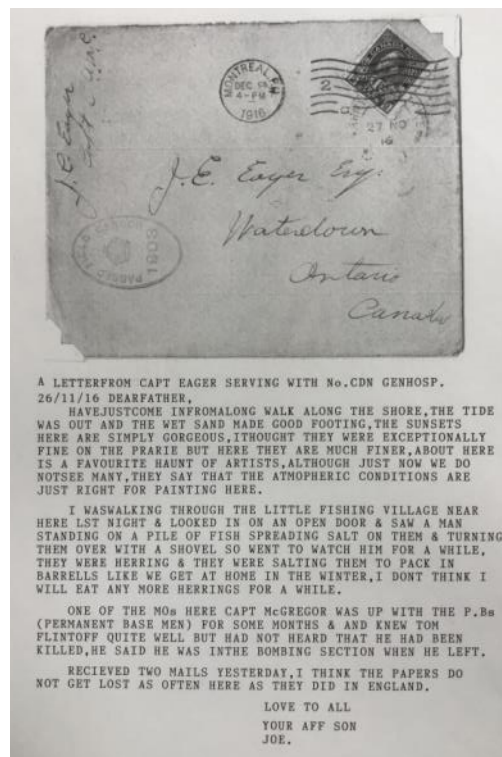 J. E. Eager
MONTREAL, P.Q.
DEC
4-PM
1916
2
27 NO
16
PASSED FIELD CENSOR
1903
J. E. Eager Esq.
Waterdown
Ontario
Canada
A LETTERFROM CAPT EAGER SERVING WITH No.CDN GENHOSP.
26/11/16 DEARFATHER,
HAVEJUSTCOME INFROMALONG WALK ALONG THE SHORE,THE TIDE
WAS OUT AND THE WET SAND MADE GOOD FOOTING,THE SUNSETS
HERE ARE SIMPLY GORGEOUS,ITHOUGHT THEY WERE EXCEPTIONALLY
FINE ON THE PRARIE BUT HERE THEY ARE MUCH FINER,ABOUT HERE
IS A FAVOURITE HAUNT OF ARTISTS,ALTHOUGH JUST NOW WE DO
NOTSEE MANY,THEY SAY THAT THE ATMOPHERIC CONDITIONS ARE
JUST RIGHT FOR PAINTING HERE.
I WASWALKING THROUGH THE LITTLE FISHING VILLAGE NEAR
HERE LST NIGHT & LOOKED IN ON AN OPEN DOOR & SAW A MAN
STANDING ON A PILE OF FISH SPREADING SALT ON THEM & TURNING
THEM OVER WITH A SHOVEL SO WENT TO WATCH HIM FOR A WHILE,
THEY WERE HERRING & THEY WERE SALTING THEM TO PACK IN
BARRELLS LIKE WE GET AT HOME IN THE WINTER,I DONT THINK I
WILL EAT ANY MORE HERRINGS FOR A WHILE.
ONE OF THE MOs HERE CAPT McGREGOR WAS UP WITH THE P.Bs
(PERMANENT BASE MEN) FOR SOME MONTHS & AND KNEW TOM
FLINTOFF QUITE WELL BUT HAD NOT HEARD THAT HE HAD BEEN
KILLED,HE SAID HE WAS INTHE BOMBING SECTION WHEN HE LEFT.
RECIEVED TWO MAILS YESTERDAY,I THINK THE PAPERS DO
NOT GET LOST AS OFTEN HERE AS THEY DID IN ENGLAND.
LOVE TO ALL
YOUR AFF SON
JOE.